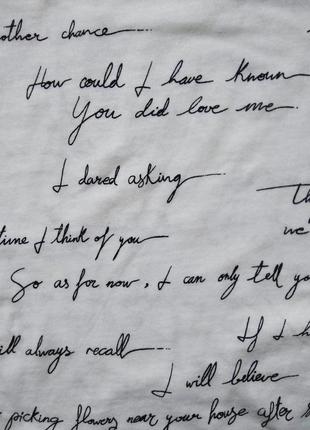 other chance
How could I have known
You did love me.
I dared asking
time I think of you
we'
So as for now, I can only tell you
If I h
ill always recall
I will believe
picking flowers near your house after s